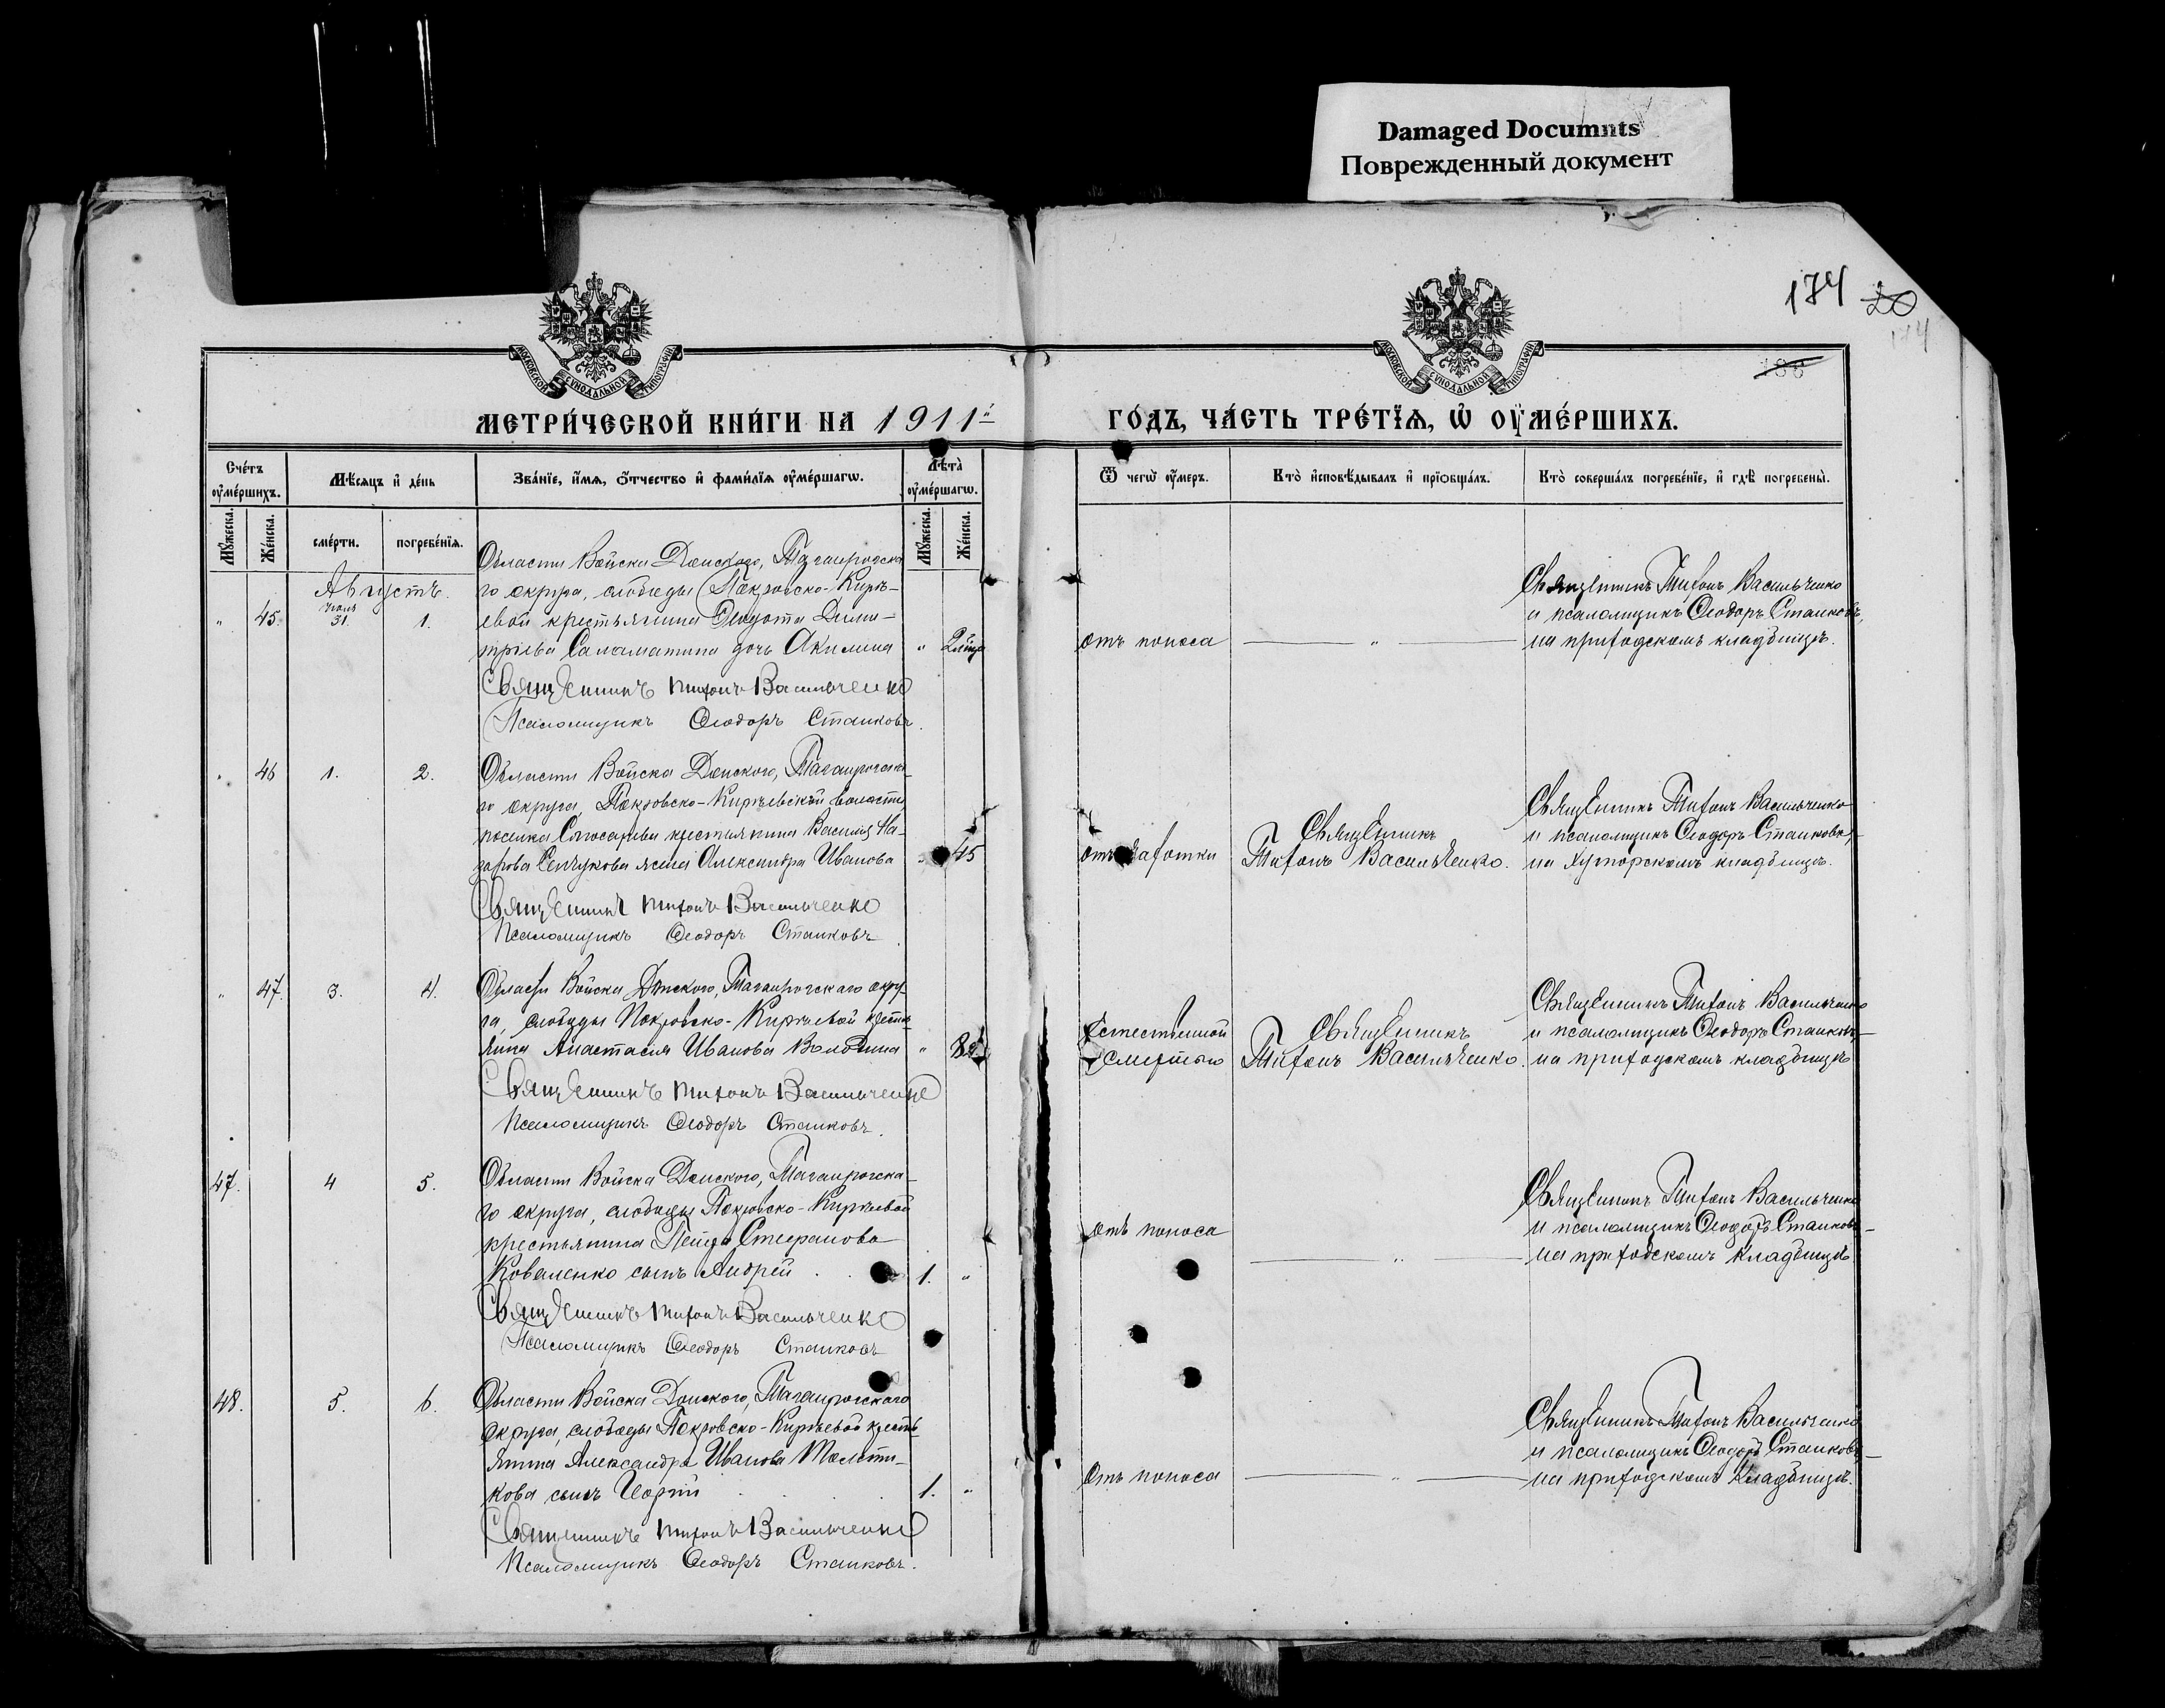 Damaged Documnts
Поврежденный документ
174 20
174
186
МОСКОВСКОЙ СѴНОДАЛЬНОЙ ТИПОГРАФІИ
МОСКОВСКОЙ СѴНОДАЛЬНОЙ ТИПОГРАФІИ
МЕТРИ́ЧЕСКОЙ КНИ́ГИ НА 1911й
ГО́ДЪ, ЧА́СТЬ ТРЕ́ТЇѦ, Ѡ҆ ОУ҆МЕ́РШИХЪ.
Сче́тъ оу҆ме́ршихъ.
Мꙋ́жеска.
Же́нска.
Мѣ́сяцъ и҆ де́нь
сме́рти.
погребе́нїя.
Зва́нїе, и҆́мя, ѻ҆́тчество и҆ фами́лїя оу҆ме́ршагѡ.
Лѣ́та оу҆ме́ршагѡ.
Мꙋ́жеска.
Же́нска.
Ѿ чегѡ̀ оу҆́меръ.
Кто̀ и҆сповѣ́дывалъ и҆ прїѻбща́лъ.
Кто̀ соверша́лъ погребе́нїе, и҆ гдѣ̀ погребены̀.
Августъ.
" 45. Іюль 31. 1.
Области Войска Донского, Таганрогска
го округа, слободы Покровско-Кирѣ-
евой крестьянина Ѳеодота Дими-
тріева Саламатина дочь Акилина " 2 мѣся
Священникъ Тихонъ Васильченко
Псаломщикъ Ѳеодоръ Станковъ.
отъ поноса
"
Священникъ Тихонъ Васильченко
и псаломщикъ Ѳеодоръ Станковъ,
на приходскомъ кладбищѣ.
" 46 1. 2.
Области Войска Донского, Таганрогска-
го округа, Покровско-Кирѣевской волости
поселка Слюсарева крестьянина Василія На-
зарова жена Александра Иванова " 45
Священникъ Тихонъ Васильченко
Псаломщикъ Ѳеодоръ Станковъ.
отъ чахотки
Священникъ
Тихонъ Васильченко.
Священникъ Тихонъ Васильченко
и псаломщикъ Ѳеодоръ Станковъ,
на хуторскомъ кладбищѣ.
" 47. 3. 4.
Области Войска Донского, Таганрогскаго окру-
га, слободы Покровско-Кирѣевой кресть-
янка Анастасія Иванова "
Священникъ Тихонъ Васильченко
Псаломщикъ Ѳеодоръ Станковъ.
Естественной
смертью
Священникъ
Тихонъ Васильченко.
Священникъ Тихонъ Васильченко
и псаломщикъ Ѳеодоръ Станковъ,
на приходскомъ кладбищѣ
47. 4 5.
Области Войска Донского, Таганрогска-
го округа, слободы Покровско-Кирѣевой
крестьянина Петра Стефанова
Коваленко сынъ Андрей 1. "
Священникъ Тихонъ Васильченко
Псаломщикъ Ѳеодоръ Станковъ
отъ поноса
"
Священникъ Тихонъ Васильченко
и псаломщикъ Ѳеодоръ Станковъ
на приходскомъ кладбищѣ
48. 5. 6.
Области Войска Донского, Таганрогскаго
округа, слободы Покровско-Кирѣевой кресть-
янина Александра Иванова Толсти-
кова сынъ Георгій 1. "
Священникъ Тихонъ Васильченко
Псаломщикъ Ѳеодоръ Станковъ.
Отъ поноса
"
Священникъ Тихонъ Васильченко
и псаломщикъ Ѳеодоръ Станковъ
на приходскомъ кладбищѣ.